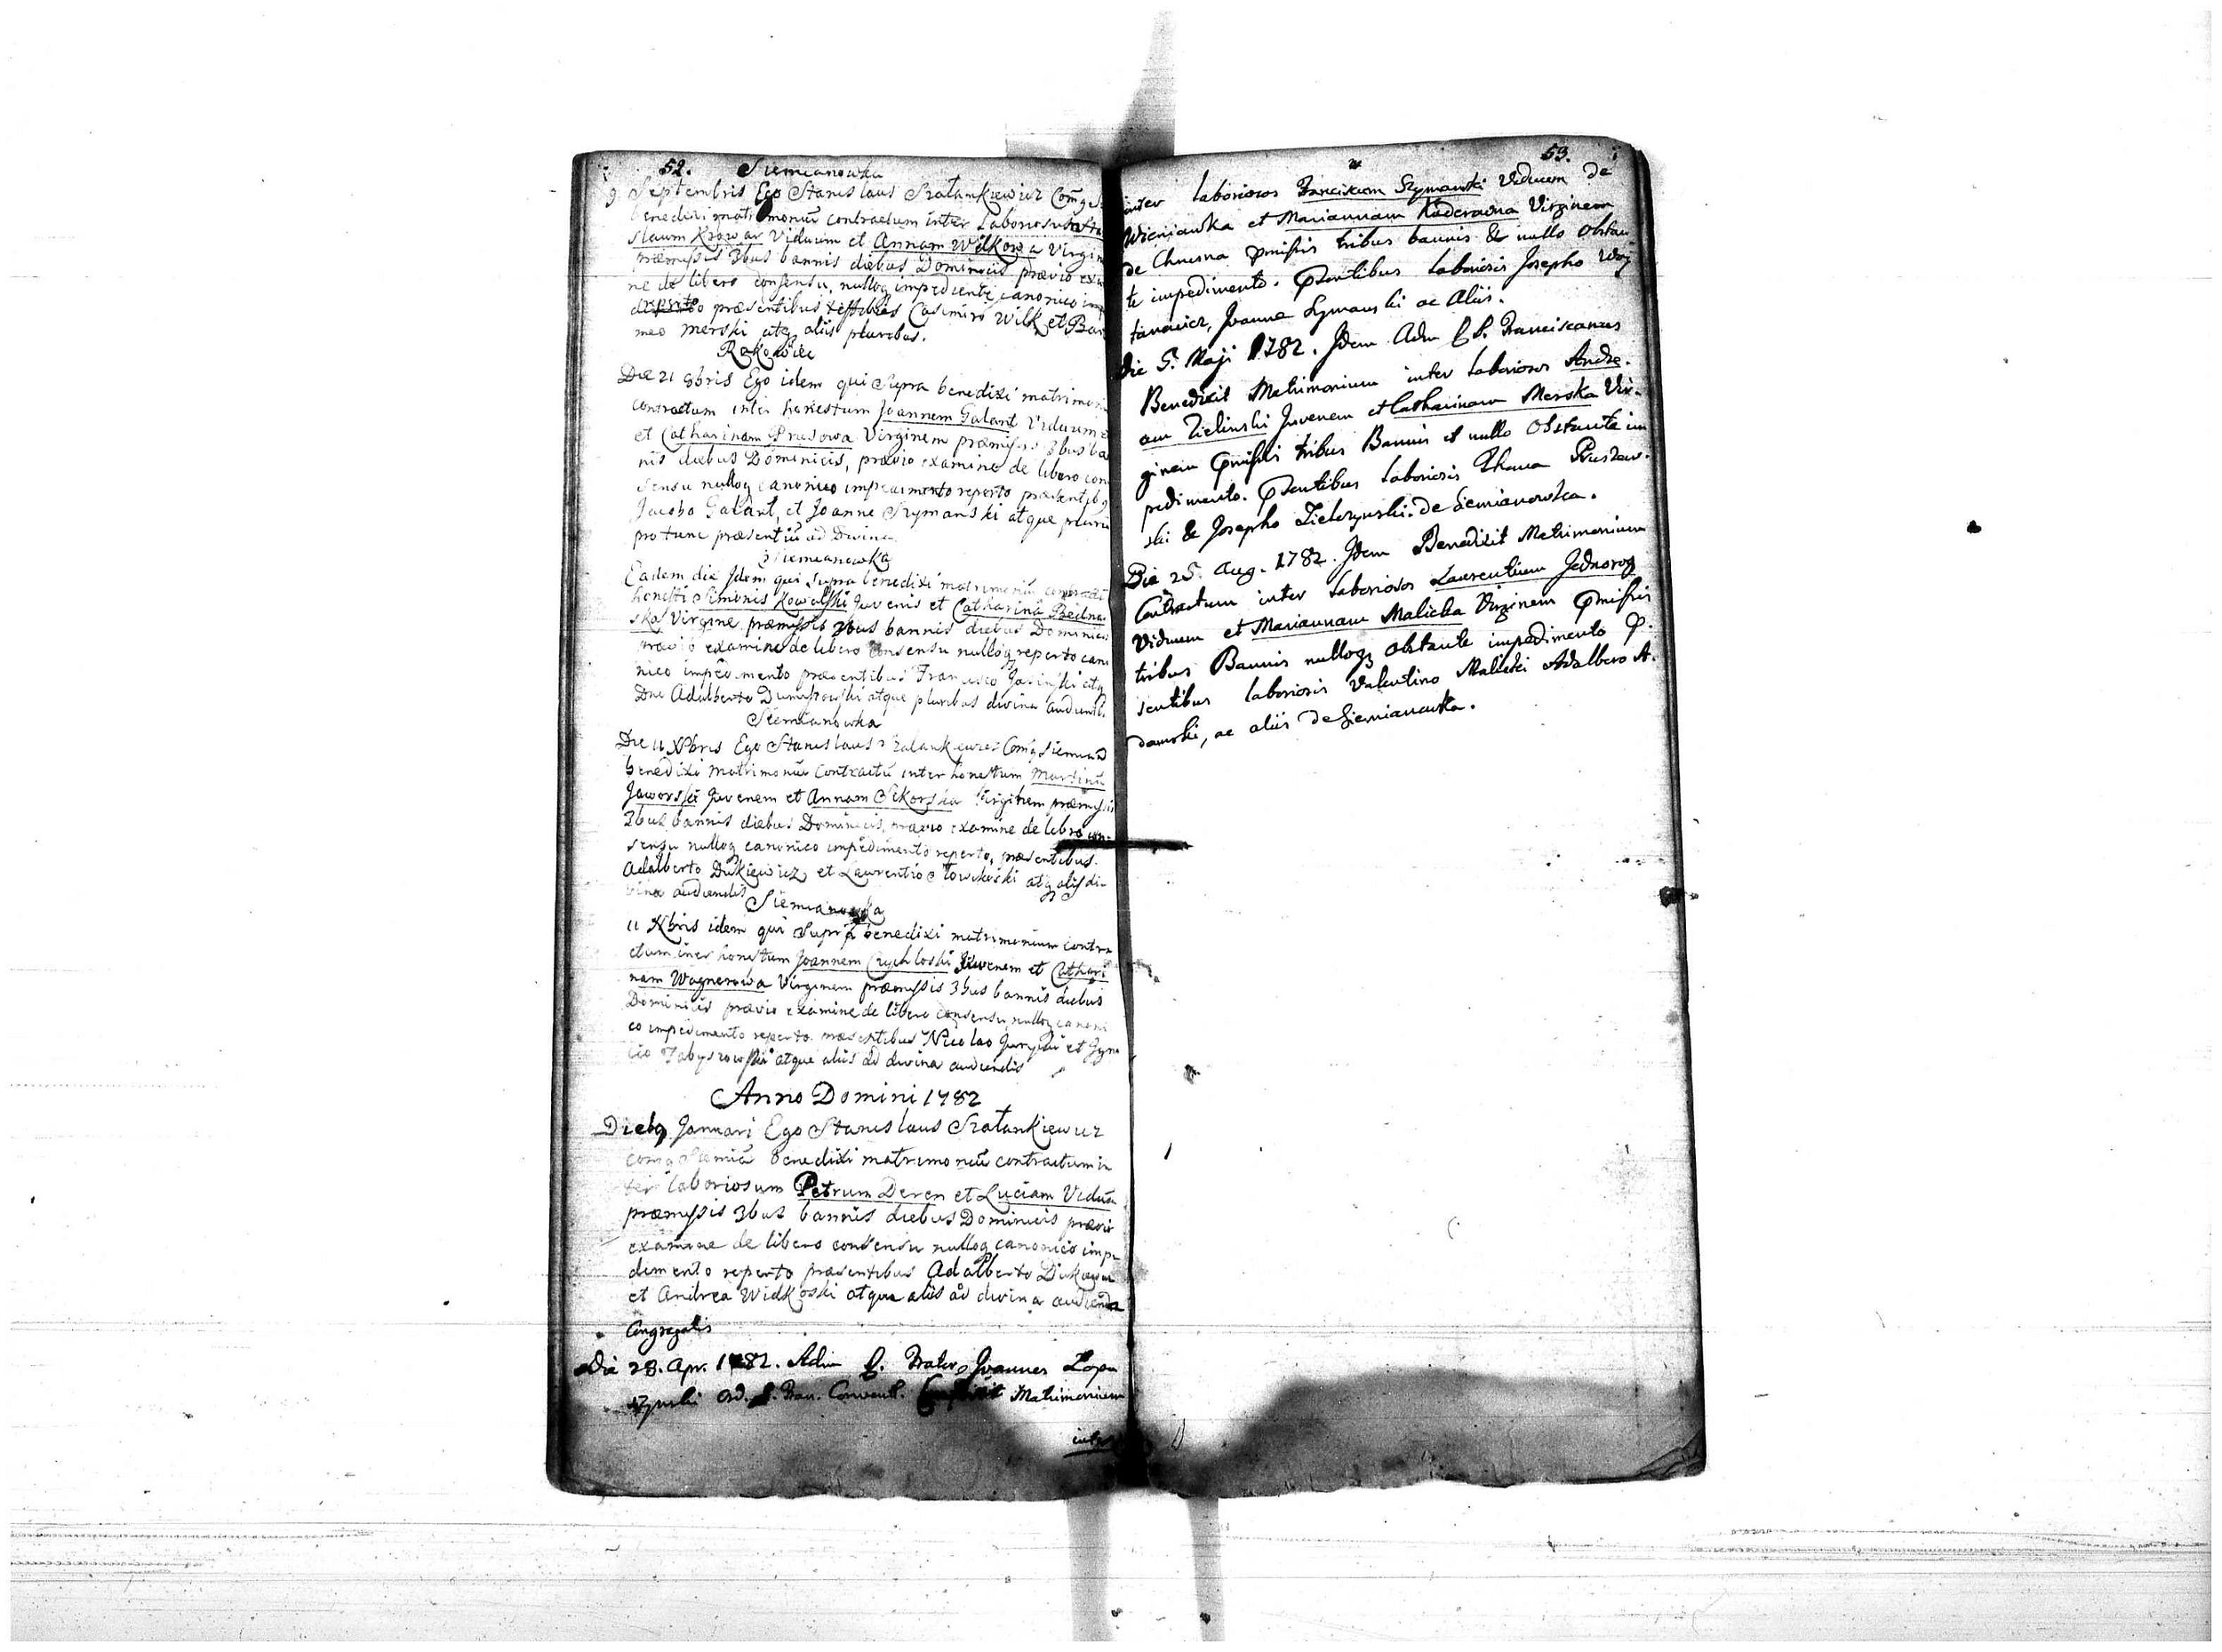 52. Siemianowka
9 Septembris Ego Stanislaus Szatankiewicz Comg
benedixi matrimoniū contractum inter Laboriosum
slaum Krowar Viduum et Annam Wilkowa Virgin
præmissis 3bus bannis diebus Dominicis prævio exa
ne de libero consensu, nulloq impediente canonico
reperto præsentibus testibus Casimiro Wilk et Bar
meo Merski atq aliis pluribus.
Rokociec
Die 21 8bris Ego idem qui Supra benedixi matrimoni
contractum inter honestum Joannem Galant Viduum
et Catharinam Prusowa Virginem præmissis 3bus ba
nis diebus Dominicis, prævio examine de libero con
sensu nulloq canonico impedimento reperto præsentibq
Jacobo Galant, et Joanne Szymanski atque pluri
pro tunc præsentiū ad Divina
Siemianowka
Eadem die Idem qui supra benedixi matrimoniū contracti
honesti Simonis Kowalski Juvenis et Catharina Bedna
ska Virgine præmissis 3bus bannis diebus Dominicis
prævio examine de libero consensu nulloq reperto cano
nico impedimento præsentibus Francisco Jasinski atq
Dno Adalberto atque pluribus divina audienti
Siemianowka
Die 11 Xbris Ego Stanislaus Szatankiewicz Comg Siemian
benedixi Matrimoniū Contractū inter honestum Martinū
Jaworski Juvenem et Annam Sikorska Virginem præmissis
3bus bannis diebus Dominicis, prævio examine de libro con-
sensu nulloq canonico impedimento reperto, præsentibus
Adalberto Dukiewicz et Laurentio atq aliis di-
vina audiendis
Siemianowka
11 Xbris idem qui Supra benedixi matrimonium contra
ctum iner honestum Joannem Czychloski Juvenem et Cathari
nam Wagnerowa Virginem præmissis 3bus bannis diebus
Dominicis prævio examine de libero consensu, nulloq canoni
co impedimento reperto præsentibus Nicolao et
atque aliis ad divina audiendis
Anno Domini 1782
Januari Ego Stanislaus Szatankiewicz
comg Siemia benedixi matrimoniū contractum in
ter laboriosum Petrum Deren et Luciam Viduā
præmissis 3bus bannis diebus Dominicis prævio
examine de libero consensu nulloq canonico impe
dimento reperto præsentibus Adalberto
et Andrea Widkoski atque aliis ad divina audienda
Congregatis
Die 28. Apr. 1782. Adm P. Frater Joannes Lopu
szynski Ord. S. Fran. Convent. Matrimonium
inter
53.
inter laboriosos Franciscum Szymanski Viduum de
Wieniawka et Mariannam Kaderowna Virginem
de Chwesna pmissis tribus bannis & nullo obstan
te impedimento. Psentibus laboriosis Josepho Woj
tanowicz, Joanne Symanski ac Aliis.
Die 5. Maji 1782. Idem Adm P. S. Franciscanus
Benedixit Matrimonium inter laboriosos Andre-
am Zielinski Juvenem et Catharinam Merska Vir-
ginem pmissis tribus Bannis et nullo obstante im
pedimento. Psentibus laboriosis Thoma Pruszew-
ski & Josepho Zielczynski de Siemianowka.
Die 25. Aug. 1782. Idem Benedixit Matrimonium
Contractum inter laboriosos Laurentium Jednorog
Viduum et Mariannam Malicka Virginem pmissis
tribus Bannis nulloq obstante impedimento P-
sentibus laboriosis Valentino Malicki Adalbero A-
damski, ac aliis de Siemianowka.